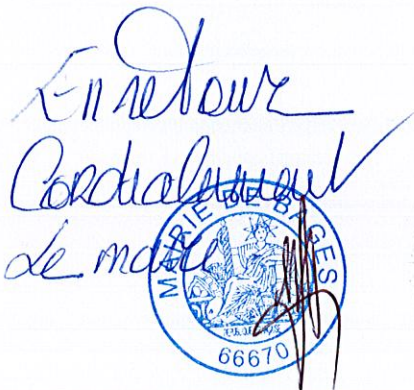 En retour
Cordialement
Le maire
MAIRIE DE BAGES
66670